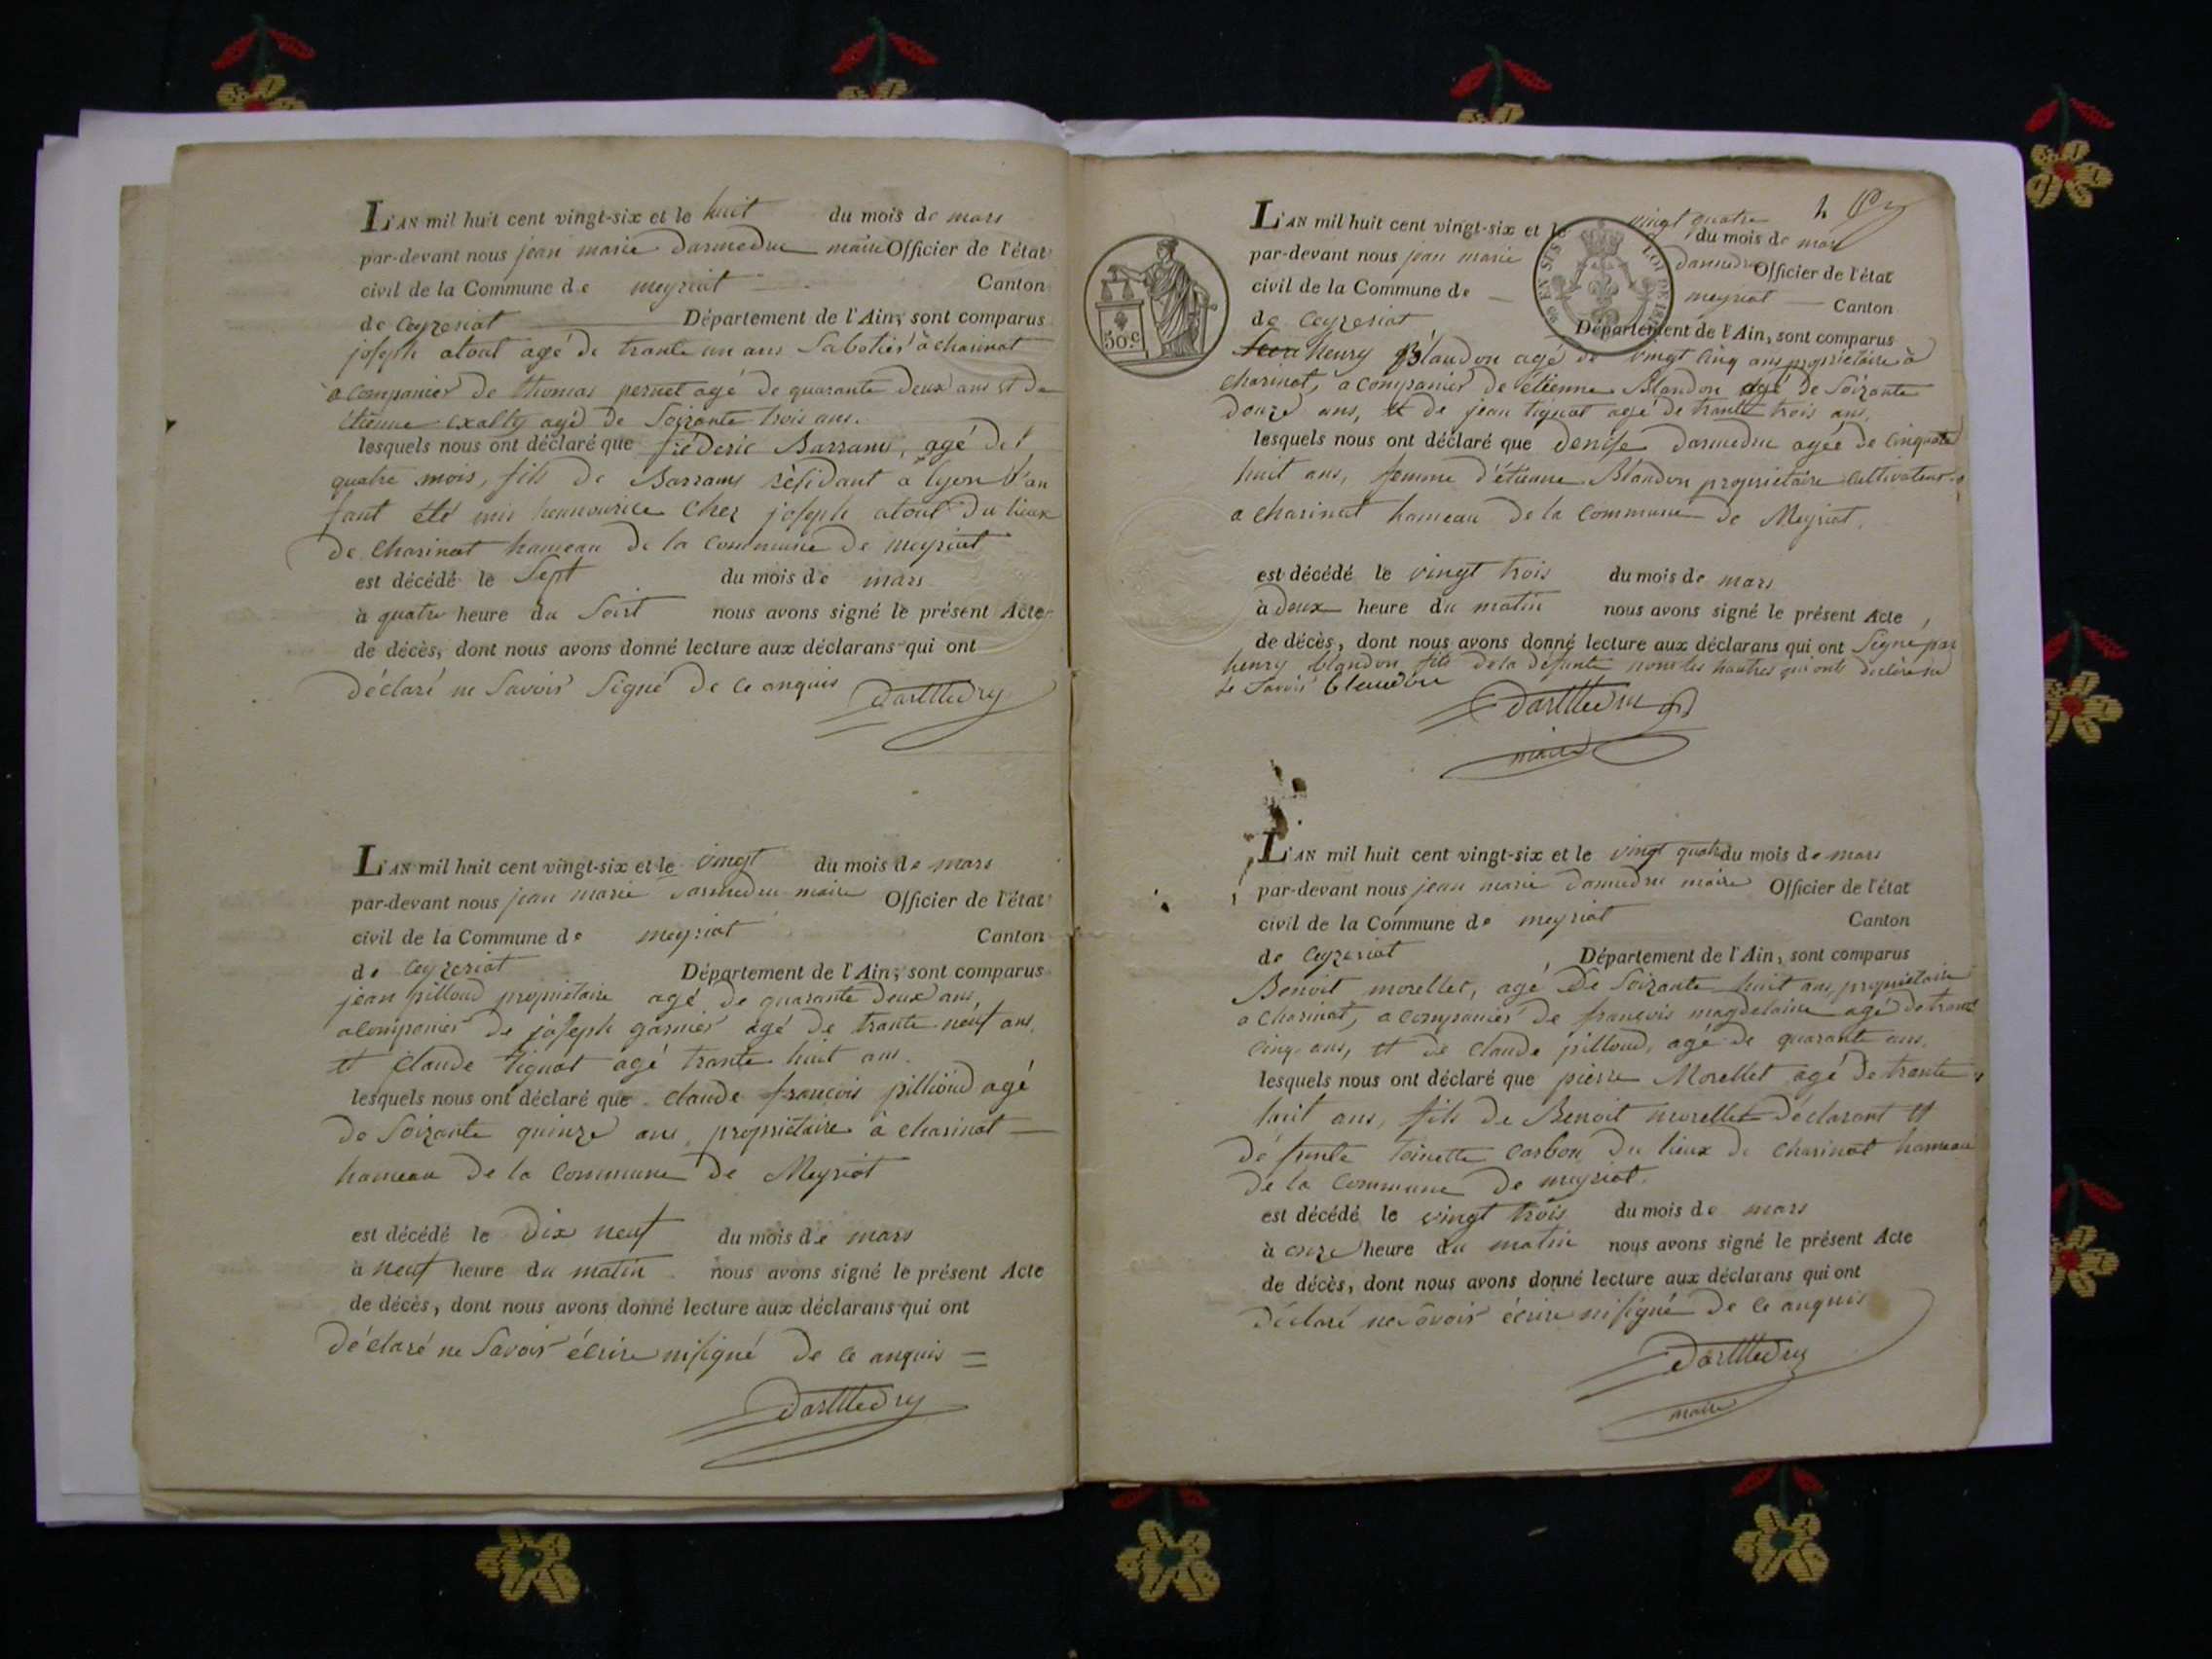 L'AN mil huit cent vingt-six et le huit du mois de mars
par-devant nous jean marie darmedru maire Officier de l'état
civil de la Commune de meyriat Canton
de Ceyzeriat Département de l'Ain, sont comparus
joseph atout agé de trante un ans Sabotier à charinat
acompanier de thomas pernet agé de quarante deux ans et de
étienne agé de Soizante trois ans.
lesquels nous ont déclaré que fréderic Barrans, agé de
quatre mois, fils de Barrans résidant a lyon l'an
fant été mis Cher joseph atout du lieux
de Charinat hameau de la Commune de meyriat
est décédé le Sept du mois de mars
à quatre heure du Soirt nous avons signé le présent Acte
de décès, dont nous avons donné lecture aux déclarans qui ont
déclaré ne Savoir Signé de ce anquis
L'AN mil huit cent vingt-six et le vingt du mois de mars
par-devant nous jean marie darmedru maire Officier de l'état
civil de la Commune de meyriat Canton
de Ceyzeriat Département de l'Ain, sont comparus
jean pilloud propriétaire agé de quarante deux ans,
acompanier de joseph garnier agé de trante neuf ans.
et Claude tignat agé trante huit ans.
lesquels nous ont déclaré que Claude françois pillioud agé
de Soizante quinze ans, propriétaire à charinat
hameau de la Commune de Meyriat
est décédé le Dix neuf du mois de mars
à neuf heure du matin nous avons signé le présent Acte
de décès, dont nous avons donné lecture aux déclarans qui ont
déclaré ne Savoir écrire ni signé de ce anquis =
4
50 c
LOI DE
L'AN mil huit cent vingt-six et le vingt quatre du mois de mars
par-devant nous jean marie darmedru Officier de l'état
civil de la Commune de meyriat Canton
de Ceyzeriat Département de l'Ain, sont comparus
henry Blandon agé de vingt cinq ans propriétaire à
charinat, acompanier de étienne Blandon agé de Soizante
douze ans, et de jean tignat agé de trante trois ans,
lesquels nous ont déclaré que denise darmedru agée de Cinquante
huit ans, femme d'étienne Blandon propriétaire Cultivateur
a charinat hameau de la Commune de Meyriat.
est décédé le vingt trois du mois de mars
à deux heure du matin nous avons signé le présent Acte
de décès, dont nous avons donné lecture aux déclarans qui ont Signé par
henry blandon fils de la défunte non les hautres qui onts déclare ne
le Savoir blandon
maire
L'AN mil huit cent vingt-six et le vingt quatre du mois de mars
par-devant nous jean marie darmedru maire Officier de l'état
civil de la Commune de meyriat Canton
de Ceyzeriat Département de l'Ain, sont comparus
Benoit morellet, agé de Soizante huit ans, propriétaire
a charinat, acompanier de françois magdelaine agé de trante
Cinq ans, et de Claude pilloud, agé de quarante ans.
lesquels nous ont déclaré que pierre Morellet agé de trante
huit ans, fils de Benoit morellet déclarant et
dé funte toinette Carbon du lieux de Charinat hameau
de la Commune de meyriat.
est décédé le vingt trois du mois de mars
à onze heure du matin nous avons signé le présent Acte
de décès, dont nous avons donné lecture aux déclarans qui ont
déclaré ne Savoir écrire ni signé de ce anquis
maire